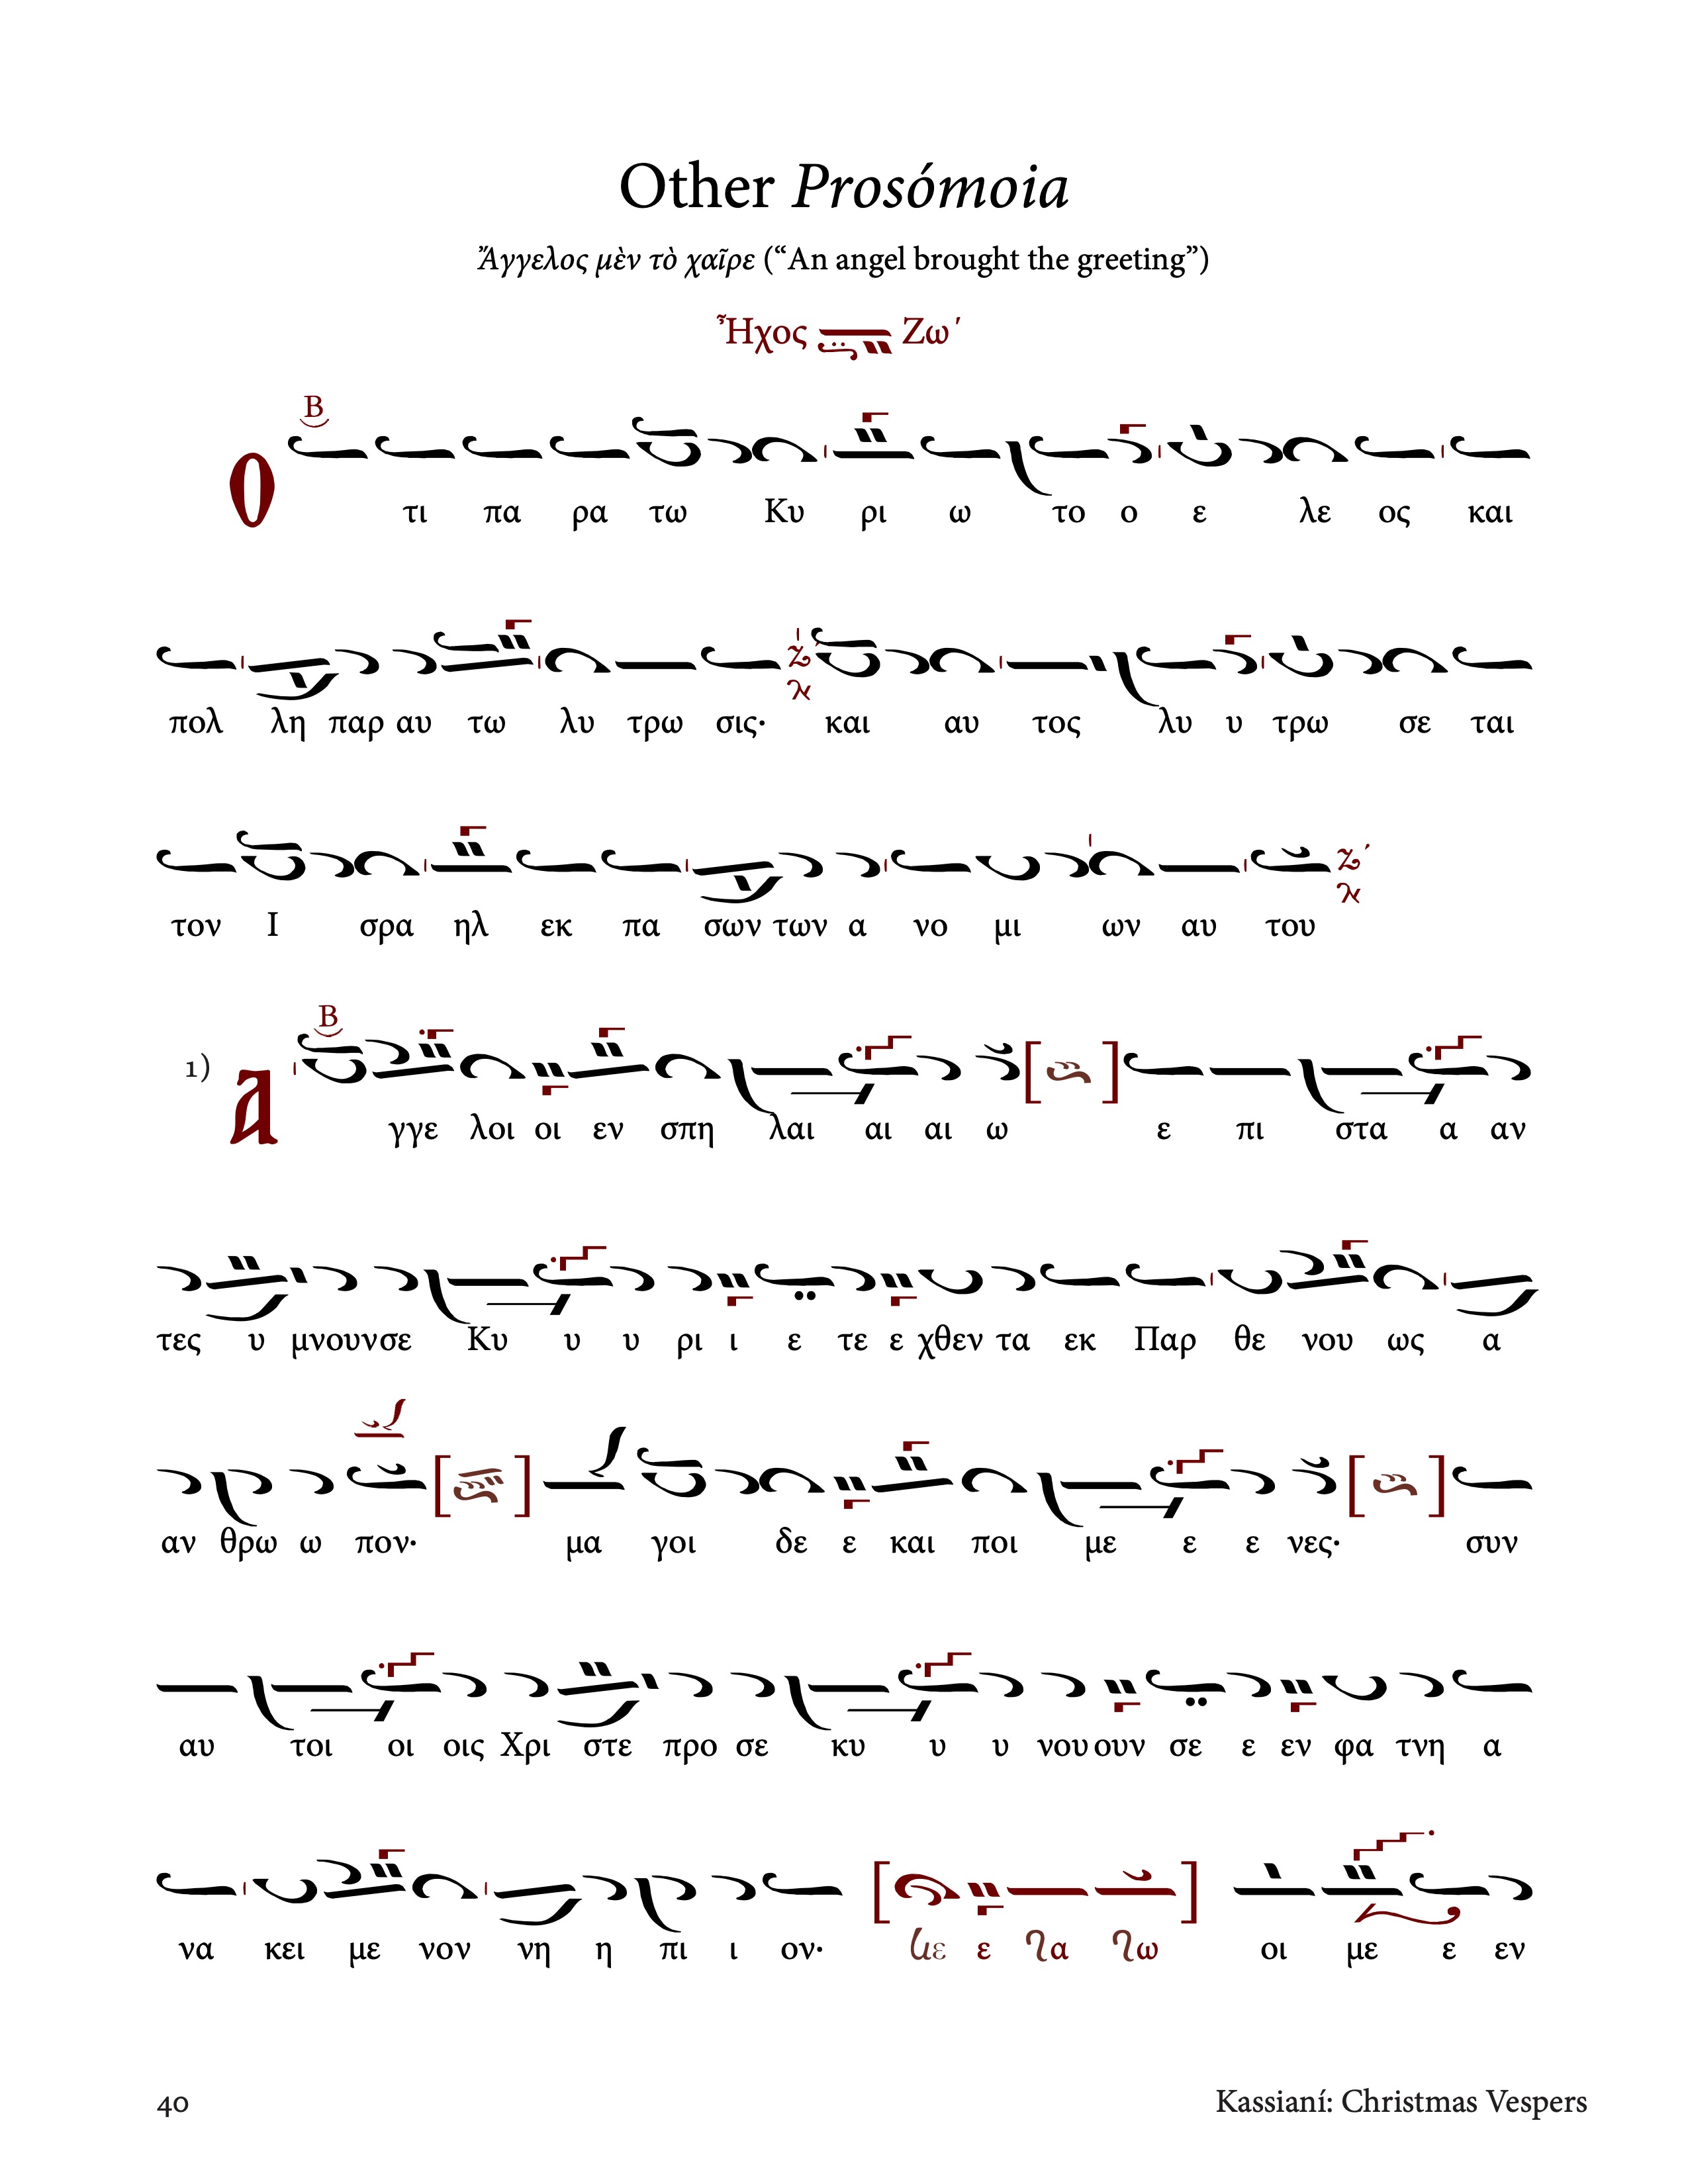 Other Prosómoia
Ἄγγελος μὲν τὸ χαῖρε (“An angel brought the greeting”)
Ἦχος Ζω΄
Β
Ο τι πα ρα τω Κυ ρι ω το ο ε λε ος και
πολ λη παρ αυ τω λυ τρω σις· και αυ τος λυ υ τρω σε ται
τον Ι σρα ηλ εκ πα σων των α νο μι ων αυ του
Β
1) Α γγε λοι οι εν σπη λαι αι αι ω ε πι στα α αν
τες υ μνουν σε Κυ υ υ ρι ι ε τε ε χθεν τα εκ Παρ θε νου ως α
αν θρω ω πον· μα γοι δε ε και ποι με ε ε νες· συν
αυ τοι οι οις Χρι στε προ σε κυ υ υ νου ουν σε ε εν φα τνη α
να κει με νον νη η πι ι ον· [ ε α ω] οι με ε εν
40 Kassianí: Christmas Vespers